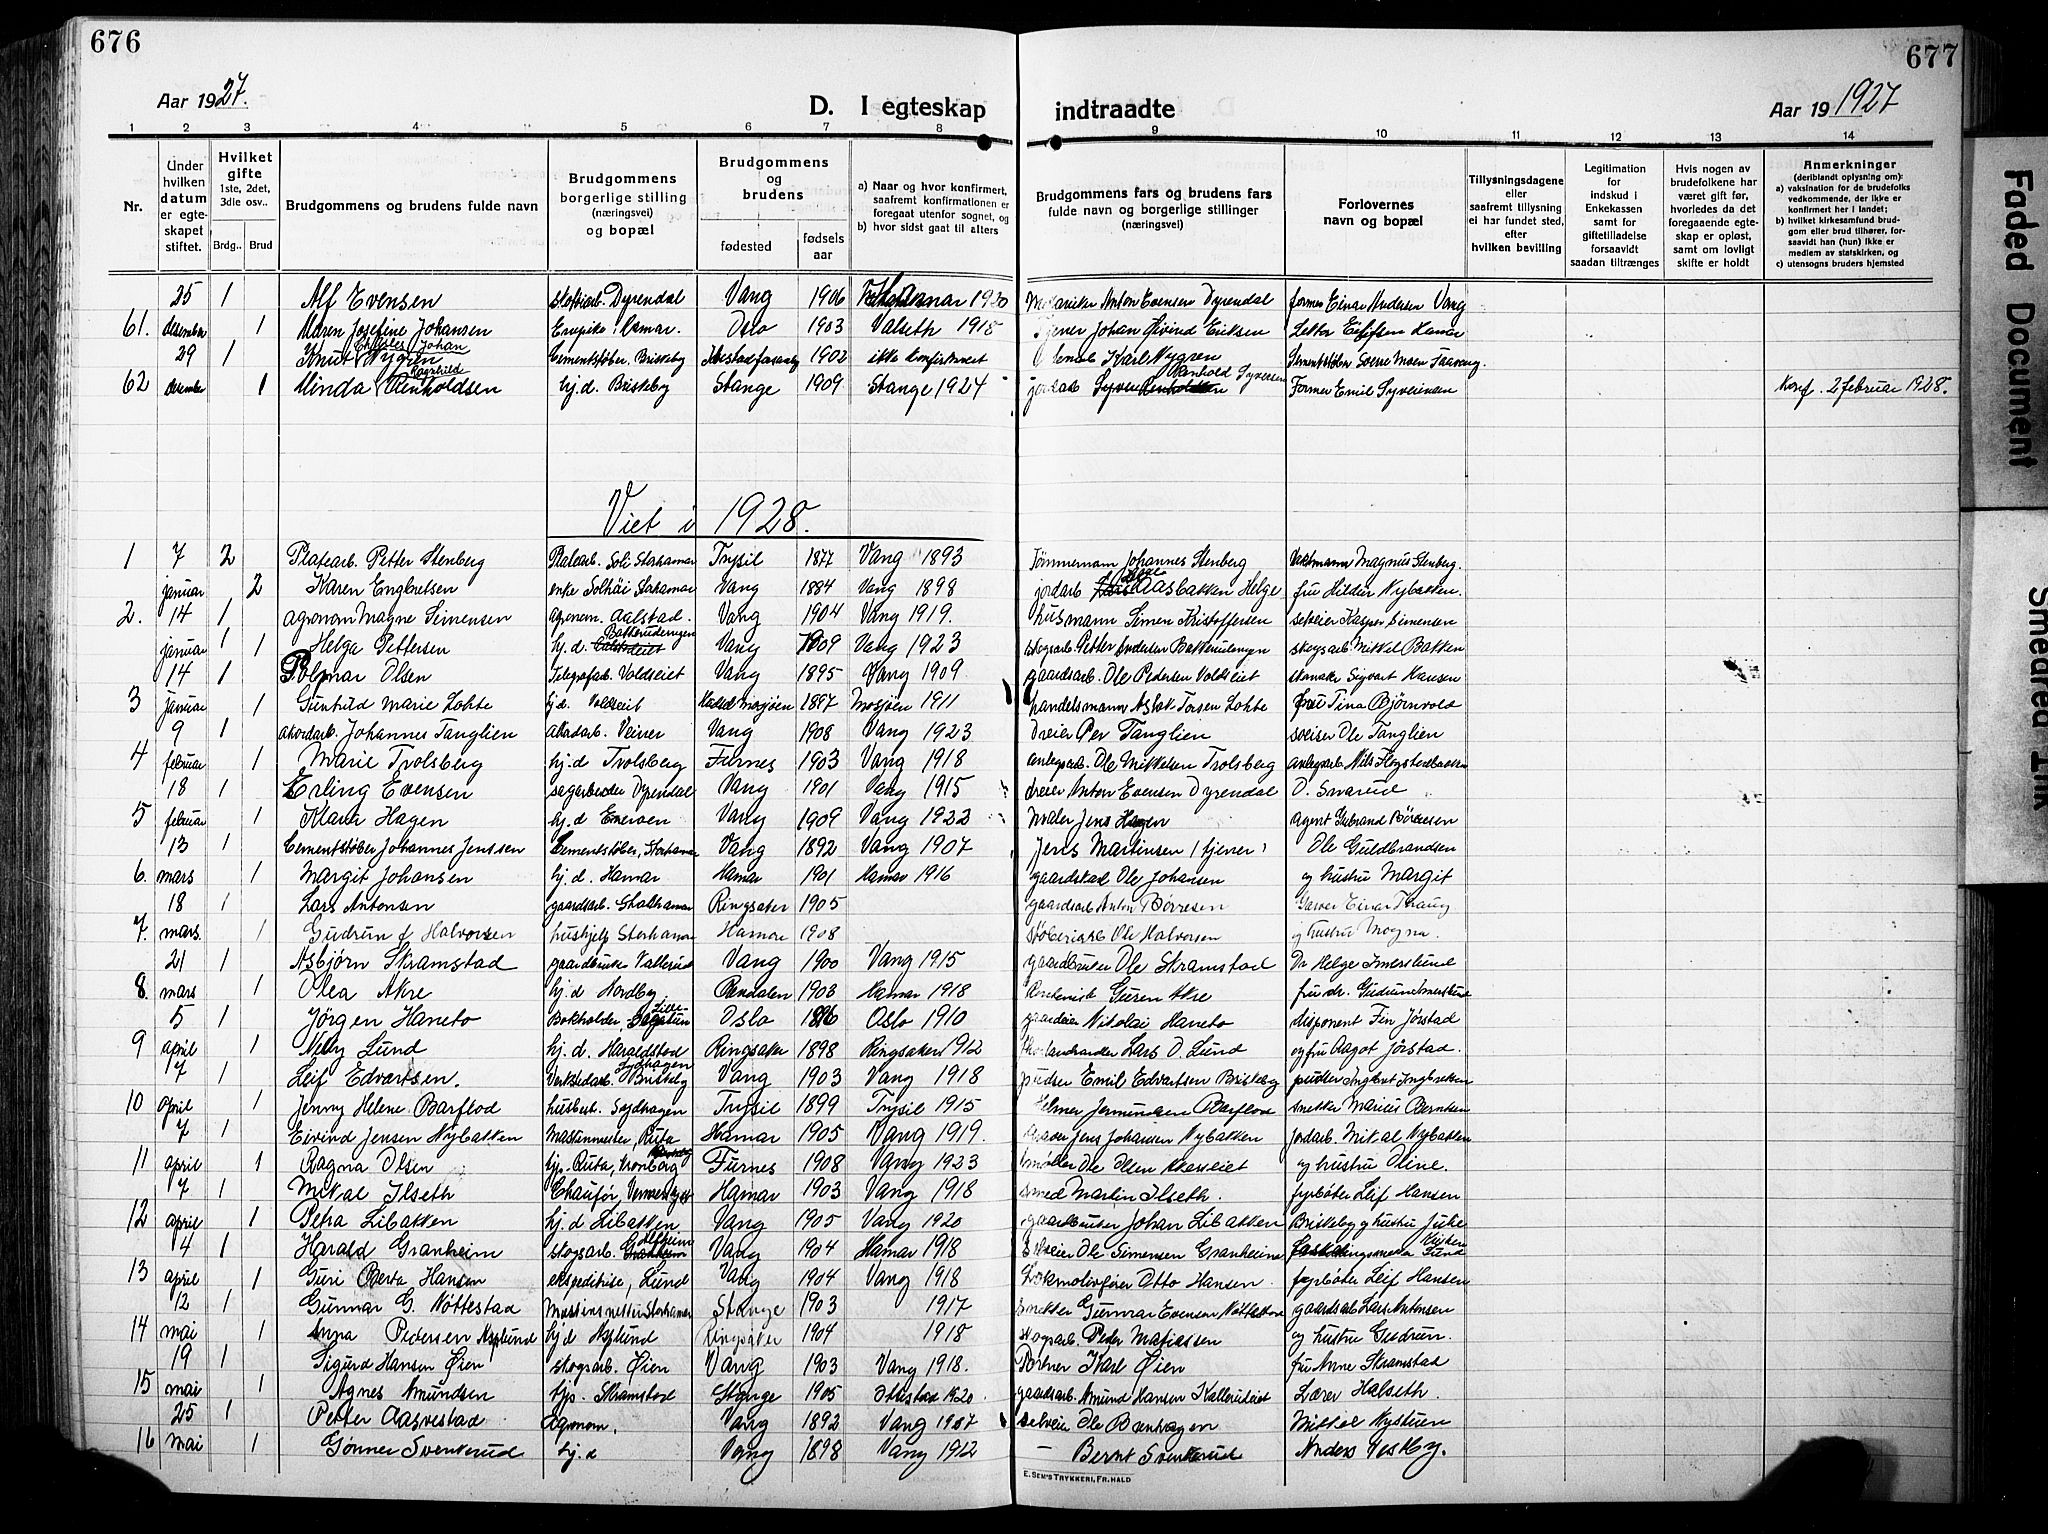 676
677
Aar 1927.
D. I egteskap
indtraadte
Aar 19 1927
1 2 3 4 5 6 7 8 9 10 11 12 13 14
Nr.
Under hvilken datum er egteskapet stiftet.
Hvilket gifte 1ste, 2det, 3die osv..
Brdg.. Brud
Brudgommens og brudens fulde navn
Brudgommens borgerlige stilling (næringsvei) og bopæl
Brudgommens og brudens
fødested
fødselsaar
a) Naar og hvor konfirmert, saafremt konfirmationen er foregaat utenfor sognet, og
b) hvor sidst gaat til alters
Brudgommens fars og brudens fars fulde navn og borgerlige stillinger (næringsvei)
Forlovernes navn og bopæl
Tillysningsdagene eller saafremt tillysning ei har fundet sted, efter hvilken bevilling
Legitimation for indskud i Enkekassen samt for giftetilladelse forsaavidt saadan tiltrænges
Hvis nogen av brudefolkene har været gift før, hvorledes da det foregaaende egteskap er opløst, samt om lovligt skifte er holdt
Anmerkninger (deriblandt oplysning om): a) vaksination for de brudefolks vedkommende, der ikke er konfirmert her i landet; b) hvilket kirkesamfund brudgom eller brud tilhører, forsaavidt han (hun) ikke er medlem av statskirken, og c) utensogns bruders hjemsted
25 1 Alf Evensen Dyrendal Vang 1906 1920 Anton Evensen Dyrendal former Einar Andersen Vang
61. desember 1 Maren Josefine Johansen Hamar. Oslo 1903 Valseth 1918 Johan Øivind Eriksen Hamar
29 1 Knut Charles Johan Nygren Cementstøber, Briskeby 1902 ikke konfirmeret Karl Nygren Cementstøber Sverre Moen
62 desember 1 Minda Ragnhild Renholdsen hj.d. Briskeby Stange 1909 Stange 1924 Renhold Syversen Former Emil Syversen Konf. 2 februar 1928.
Viet i 1928.
1 7 2 Platearb. Petter Stenberg Platearb. Soli Storhamar Trysil 1877 Vang 1893 Tømmermann Johannes Stenberg Magnus Stenberg.
januar 2 Karen Engbretsen enke Solhøi Storhamar Vang 1884 Vang 1898 jordarb Aasbakken Helge fru Hilda Nybakken.
2. 14 1 agronom Magne Simensen agronom. Aalstad. Vang 1904 Vang 1919. husmann Simen Kristoffersen selveier Kasper Simensen
januar 1 Helga Pettersen hj.d. Bakkerudengen Vang 1909 Vang 1923 skogsarb Petter Andersen Bakkerudengen skogsarb Mikkel Bakken
14 1 Polmar Olsen Telegrafarb. Voldseiet Vang 1895 Vang 1909 gaardsarb. Ole Pedersen Voldseiet Sigvart Hansen
3 januar 1 Gunhild Marie Lohte hj.d. Voldseiet Mosjøen 1897 Mosjøen 1911 handelsmann Aslak Torsen Lohte fru Tina Bjørnvold
9 1 akordarb. Johannes Tanglien akordarb. Veiner Vang 1908 Vang 1923 Dreier Per Tanglien sveiser Ole Tanglien
4 februar 1 Marie Trolsberg hj.d Trolsberg Furnes 1903 Vang 1918 anlegsarb. Ole Mikkelsen Trolsberg anlegsarb Nils
18 1 Erling Evensen sagarbeider Dyrendal Vang 1901 Vang 1915 dreier Anton Evensen Dyrendal O. Snarud
5 februar 1 Klara Hagen hj.d Enersen Vang 1909 Vang 1923 Maler Jens Hagen agent Gulbrand Børresen
13 1 Cementstøber Johannes Jenssen Cementstøber, Storhamar Vang 1892 Vang 1907 Jens Martinsen (tjener) Ole Guldbrandsen
6. mars 1 Margit Johansen hj.d. Hamar Hamar 1901 Hamar 1916 gaardskarl Ole Johansen og hustru Margit
18 1 Lars Antonsen gaardsarb. Storhamar Ringsaker 1905 gaardsarb Anton Børresen Einar
7. mars. 1 Gudrun Halvorsen hushjelp Storhamar Hamar 1908 Ole Halvorsen og hustru Magna.
21 1 Asbjørn Skramstad gaardbruker Vallerud Vang 1900 Vang 1915 gaardbruker Ole Skramstad Dr Helge Imerslund
8. mars 1 Olea Akre hj.d Nordby Rendalen 1903 Hamar 1918 Guren Akre fru dr. Gudrun Imerslund
5 1 Jørgen Haneto Bokholder, Oslo 1896 Oslo 1910 gaardeier Nikolai Haneto disponent Fin Jørstad
9 april 1 Nelly Lund hj.d. Haraldstad Ringsaker 1898 Ringsaker 1912 Lars O. Lund og fru Aagot Jørstad.
7 1 Leif Edvartsen. Verkstedarb. Briskeby Vang 1903 Vang 1918 pudser Emil Edvartsen Briskeby pudser Ingbret Ingbretsen
10 april 1 Jenny Helene Barflod husbest. Sydhagen Trysil 1899 Trysil 1915 Helmer Jermundsen Barflod snekker Marius Berntsen
7 1 Eivind Jensen Nybakken Maskinmester, Ruta Hamar 1905 Vang 1919. Graver Jens Johansen Nybakken Jordarb. Mikal Nybakken
11 april 1 Ragna Olsen hjp. Ruta, Kronborg Furnes 1908 Vang 1923 Ole Olsen og hustru Oline.
7 1 Mikal Ilseth Chauffør, Hamar 1903 Vang 1918 smed Martin Ilseth. fyrbøter Leif Hansen
12 april 1 Petra Libakken hj.d Libakken Vang 1905 Vang 1920 gaardbruker Johan Libakken Briskeby og hustru Julie
4 1 Harald Granheim skogsarb. Vang 1904 Hamar 1918 Selveier Ole Simensen Granheim Lund
13 april 1 Guri Berta Hansen ekspeditrise, Lund Vang 1904 Vang 1918 Lokmotivfører Otto Hansen. fyrbøter Leif Hansen
12 1 Gunnar G. Nøttestad Maskinsnekker Storhamar Stange 1903 1917 snekker Gunnar Evensen Nøttestad gaardsarb Lars Antonsen
14 mai 1 Anna Pedersen Asplund hj.d Asplund Ringsaker 1904 1918 skogsarb. Peder Matiassen og hustru Gudrun.
19 1 Sigurd Hansen Øien skogsarb. Øien Vang 1903 Vang 1918. Karl Øien fru Anne Skramstad
15 mai 1 Agnes Amundsen hjp. Skramstad Stange 1905 Ottestad 1920. gaardsarb. Amund Hansen Kallerudeiet Lærer Halseth.
25 1 Petter Aagvestad Agronom. Vang 1892 Vang 1907 selveier Ole Mikkel Nystuen
16 mai 1 Gønner Svenkerud hj.d Vang 1898 Vang 1912 — Bernt Svenkerud Anders Vestby.
E. SEM'S TRYKKERI, FR.HALD
Faded Document
Smeared Ink